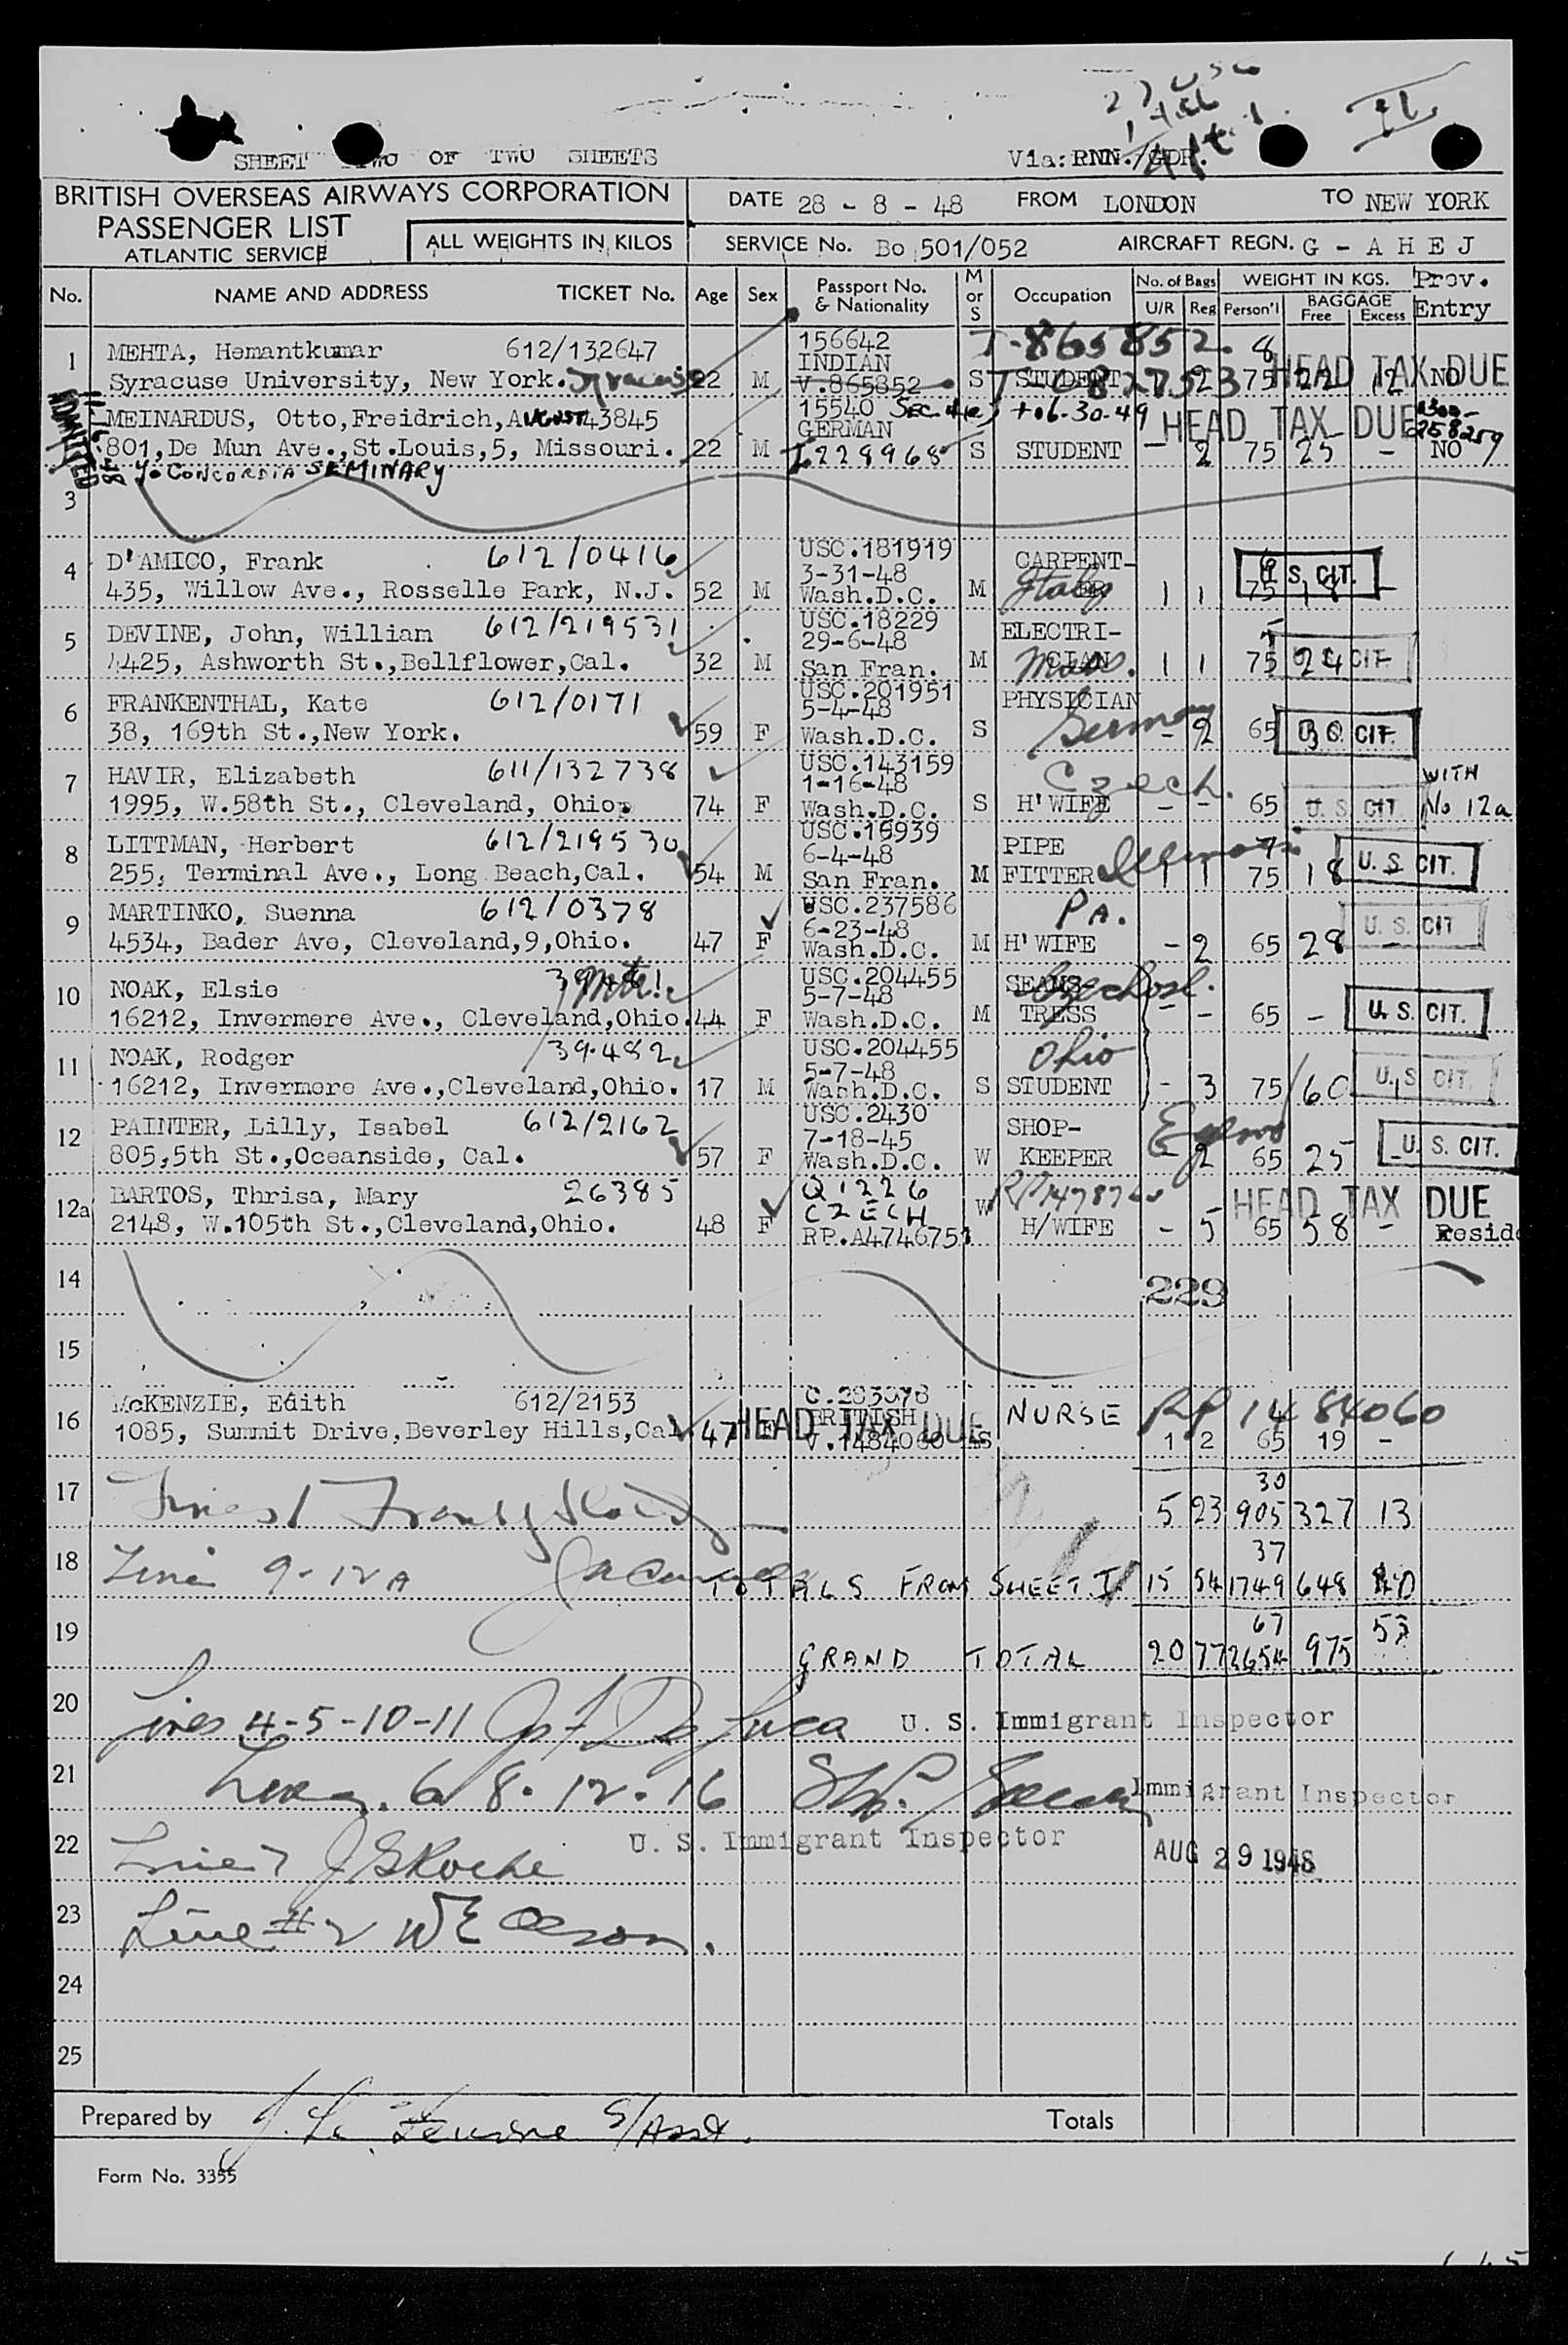 SHEET TWO OF TWO SHEETS
Via: RNN./GDR.
BRITISH OVERSEAS AIRWAYS CORPORATION
PASSENGER LIST
ATLANTIC SERVICE
ALL WEIGHTS IN KILOS
DATE 28 - 8 - 48 FROM LONDON TO NEW YORK
SERVICE No. Bo 501/052 AIRCRAFT REGN. G - A H E J
No. NAME AND ADDRESS TICKET No. Age Sex Passport No. & Nationality M or S Occupation No. of Bags U/R Reg WEIGHT IN KGS. Person'l BAGGAGE Free Excess Prov. Entry
1 MEHTA, Hemantkumar 612/132647 156642 T-865852 8
INDIAN HEAD TAX DUE
Syracuse University, New York. Syracuse 22 M V.865852 S STUDENT 2 75 NO
ADMITTED
2 MEINARDUS, Otto, Freidrich, AUGUST 43845 15540 Sec. 4(e) to 6-30-49 HEAD TAX DUE
GERMAN
801, De Mun Ave., St.Louis, 5, Missouri. 22 M S STUDENT - 2 75 25 - NO
℅ CONCORDIA SEMINARY
3
4 D'AMICO, Frank 612/0416 USC.181919 CARPENT-
3-31-48 Italy U. S. CIT.
435, Willow Ave., Rosselle Park, N.J. 52 M Wash.D.C. M ER 1 1 75 18 -
5 DEVINE, John, William 612/219531 USC.18229 ELECTRI-
29-6-48 Mass. U. S. CIT
4425, Ashworth St., Bellflower, Cal. 32 M San Fran. M CIAN 1 1 75 24 -
6 FRANKENTHAL, Kate 612/0171 USC.201951 PHYSICIAN
5-4-48 Germany U. S. CIT.
38, 169th St., New York. 59 F Wash.D.C. S - 2 65
7 HAVIR, Elizabeth 611/132738 USC.143159 Czech.
1-16-48 U. S. CIT. WITH
1995, W.58th St., Cleveland, Ohio. 74 F Wash.D.C. S H'WIFE - - 65 No 12a
8 LITTMAN, Herbert 612/219530 USC.16939 PIPE 7
6-4-48 U. S. CIT.
255, Terminal Ave., Long Beach, Cal. 54 M San Fran. M FITTER 1 1 75 18
9 MARTINKO, Suenna 612/0378 USC.237586 PA.
6-23-48 U. S. CIT
4534, Bader Ave, Cleveland, 9, Ohio. 47 F Wash.D.C. M H'WIFE - 2 65 28 -
10 NOAK, Elsie USC.204455 SEAMS- Czechosl.
5-7-48 U. S. CIT.
16212, Invermere Ave., Cleveland, Ohio. 44 F Wash.D.C. M TRESS - - 65 -
11 NOAK, Rodger 39.482 USC.204455 Ohio
5-7-48 U. S. CIT.
16212, Invermere Ave., Cleveland, Ohio. 17 M Wash.D.C. S STUDENT - 3 75 60
12 PAINTER, Lilly, Isabel 612/2162 USC.2430 SHOP-
7-18-45 U. S. CIT.
805, 5th St., Oceanside, Cal. 57 F Wash.D.C. W KEEPER - 2 65 25 -
12a BARTOS, Thrisa, Mary 26385 Q1226 HEAD TAX DUE
CZECH W
2148, W.105th St., Cleveland, Ohio. 48 F RP.A4746751 H/WIFE - 5 65 58 -
14 229
15
16 McKENZIE, Edith 612/2153 NURSE RP 1484060
BRITISH HEAD TAX DUE
1085, Summit Drive, Beverley Hills, Cal 47 F V.1484060 S 1 2 65 19 -
17 30
5 23 905 327 13
18 Line 9-12A 37
TOTALS FROM SHEET I. 15 54 1749 648 40
19 67
GRAND TOTAL 20 77 2654 975 53
20 Lines 4-5-10-11 De Luca U. S. Immigrant Inspector
21 Lines. 6 8. 12. 16 Immigrant Inspector
22 Line 7 Roche U. S. Immigrant Inspector AUG 29 1948
23 Line #2 WE Olson.
24
25
Prepared by Totals
Form No. 3355